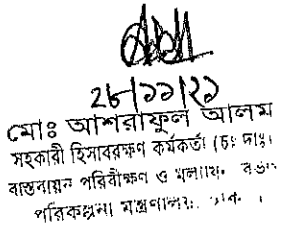 ২৮/১১/২১
মোঃ আশরাফুল আলম
সহকারী হিসাবরক্ষণ কর্মকর্তা (চঃ দাঃ)
বাস্তবায়ন পরিবীক্ষণ ও
পরিকল্পনা মন্ত্রণালয়